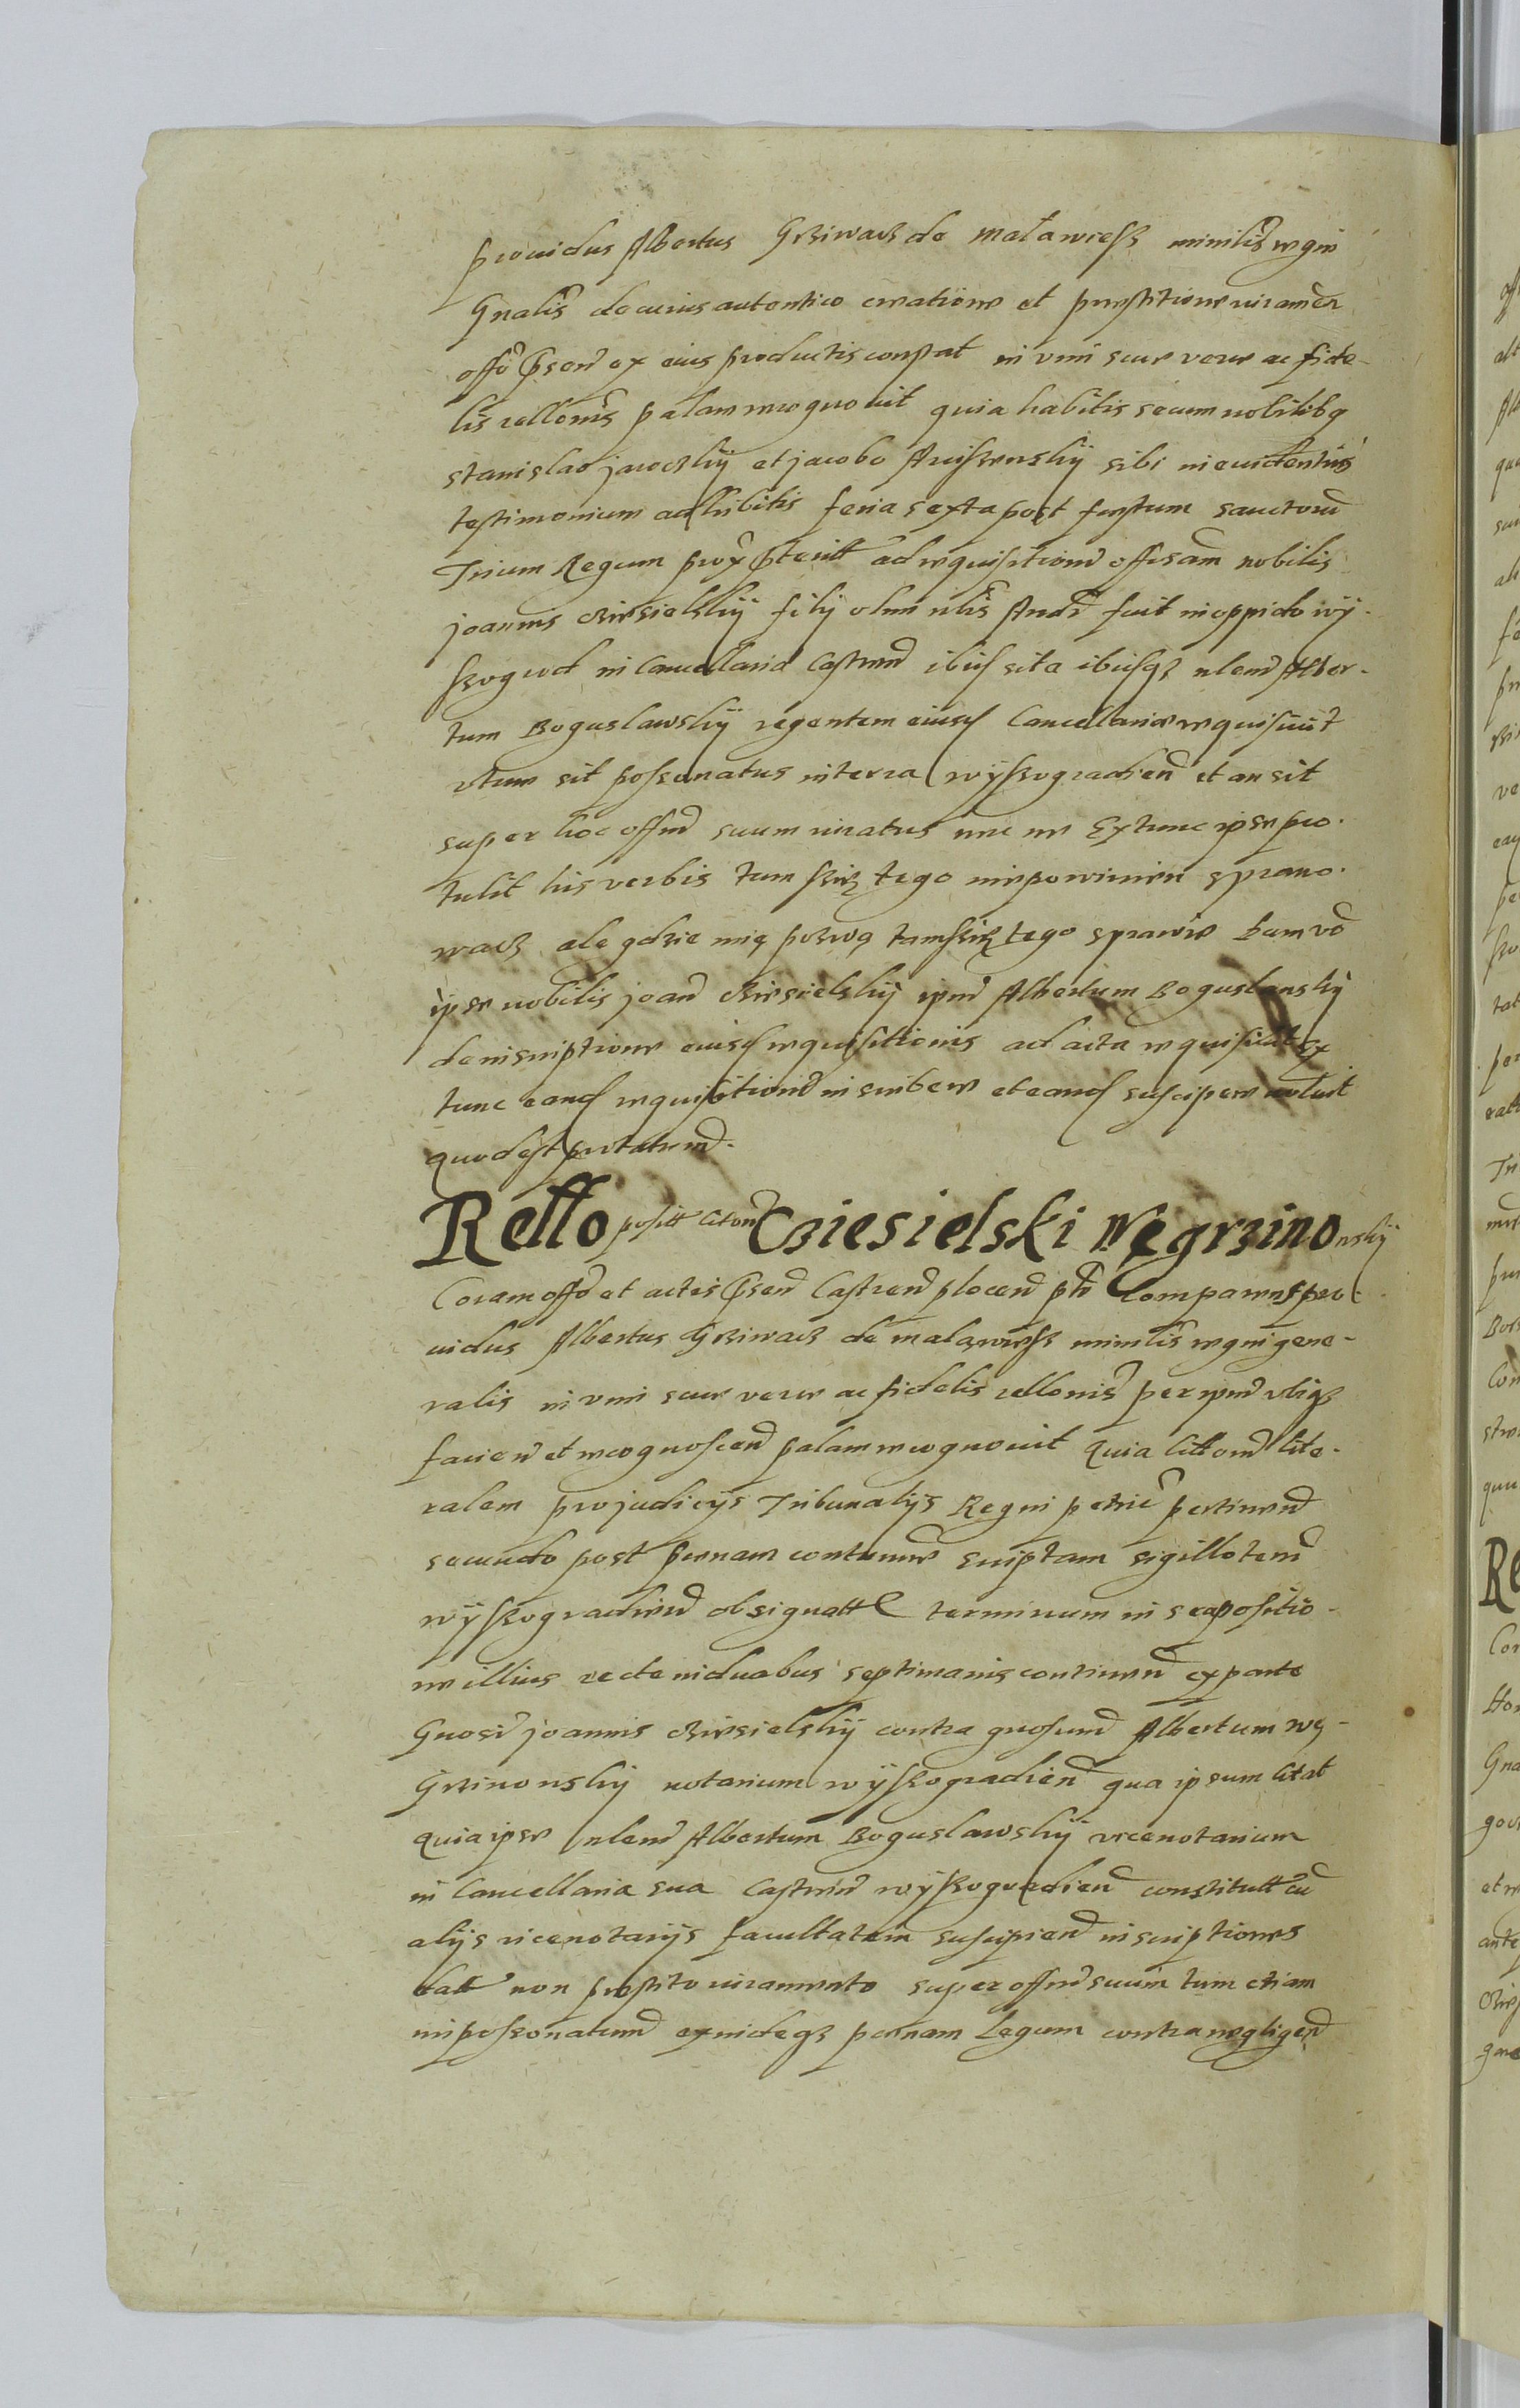 prouidus Albertus Grziwacz de malawiesz minilis regni
Gnalis de cuius autentico creatione et prestitione iuramen
offo psen ex eius productis constat in vim sue vere ac fide-
lis rellonis palam recognouit quia habitis secum nobilibq
stanislao jaroczkij et jacobo sibi in euidentius
testimonium adhibitis feria sexta post festum sanctoru
Trium Regum prox pterit ad requisitione offosam nobilis
joannis Cziesielskij filij olim nlis Andr fuit in oppido wij-
szogrod in Cancellaria Castren ibid sita ibidqz nlem Alber-
tum Boguslawskij regentem eiusd Cancellariae requisiuit
vtrum sit possonatus in terra wijszogradien et an sit
super hoc offm suum iuratus nec ne Extunc ipse pro-
tulit his verbis tum szię tego niepowinien sprawo-
wacz ale gdzie mię pozwą tam szię tego sprawie Eum vo
ipse nobilis joan Cziesielskij ipm Albertum Boguslauskij
de inscriptione eiusd requisitionis ad acta requisiuit Ex
tunc eand requisitione inscribere et eand suscipere noluit
quod est protatum.
Rello positt citon Cziesielski Węgrzinowskij
Coram offo et actis psen Castren plocen pts Comparens pro-
uidus Albertus Grziwacz de malawiesz minilis regni gene-
ralis in vim sue vere ac fidelis rellonis per ipm vbiqz
facien et recognoscen palam recognouit quia litton lite-
ralem pro judicijs Tribunalijs Regni petric pertinen
secundo post penam contumae scriptam sigillo terre
wijszogradien obsignatt terminum in se a positio-
ne illius recte in duabus septimanis continen ex parte
Gnosi joannis Cziesielskij contra gnosum Albertum wę-
Grzinowskij notarium wijszogradien qua ipsum citat
quia ipse nlem Albertum Boguslawskij vicenotarium
in Cancellaria sua Castren wijszogradien constitutt cu
alijs vicenotarijs facultatem suscipien inscriptiones
datt non prestito iuramento super offm suum tum etiam
impossonatum exindeqz penam Legum contra negligen